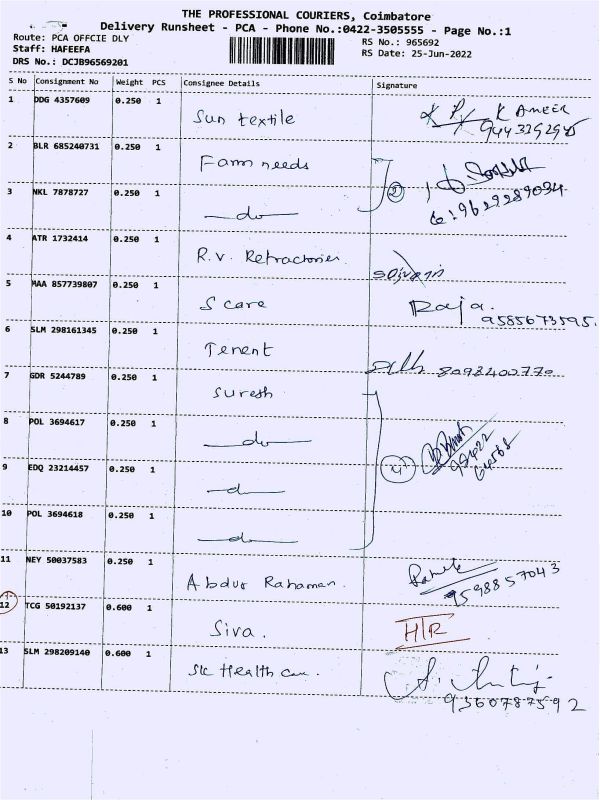 THE PROFESSIONAL COURIERS, Coimbatore
Delivery Runsheet - PCA - Phone No.:0422-3505555 - Page No.:1
Route: PCA OFFCIE DLY
RS No.: 965692
Staff: HAFEEFA
RS Date: 25-Jun-2022
DRS No.: DCJB96569201
S No Consignment No Weight PCS Consignee Details Signature
1 DDG 4357609 0.250 1 Sun textile K AMEER
9443292945
2 BLR 685240731 0.250 1 Farm needs
3 NKL 7878727 0.250 1 do 2 9629289034
4 ATR 1732414 0.250 1 R.V. Refractories
5 MAA 857739807 0.250 1 S care Raja.
9585673595.
6 SLM 298161345 0.250 1 Tenent 8098400770
7 GDR 5244789 0.250 1 Suresh
8 POL 3694617 0.250 1 do
9 EDQ 23214457 0.250 1 do 4
10 POL 3694618 0.250 1 do
11 NEY 50037583 0.250 1 Abdur Rahaman.
9598857043
12 TCG 50192137 0.600 1 Siva. HTR
13 SLM 298209140 0.600 1 SK Health
9360787592